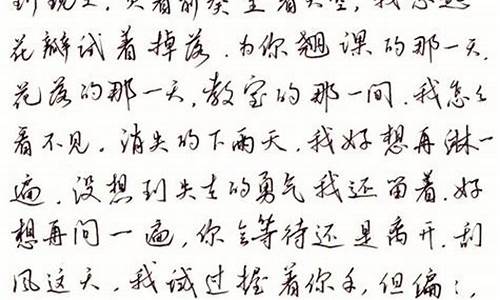 着前奏望着天空,我想起
花瓣试着掉落.为你翘课的那一天,
花落的那一天,教室的那一间.我怎么
看不见.消失的下雨天,我好想再淋一
遍.没想到失去的勇气我还留着.好
想再问一遍,你会等待还是离开.刮
风这天,我试过握着你手,但偏:,